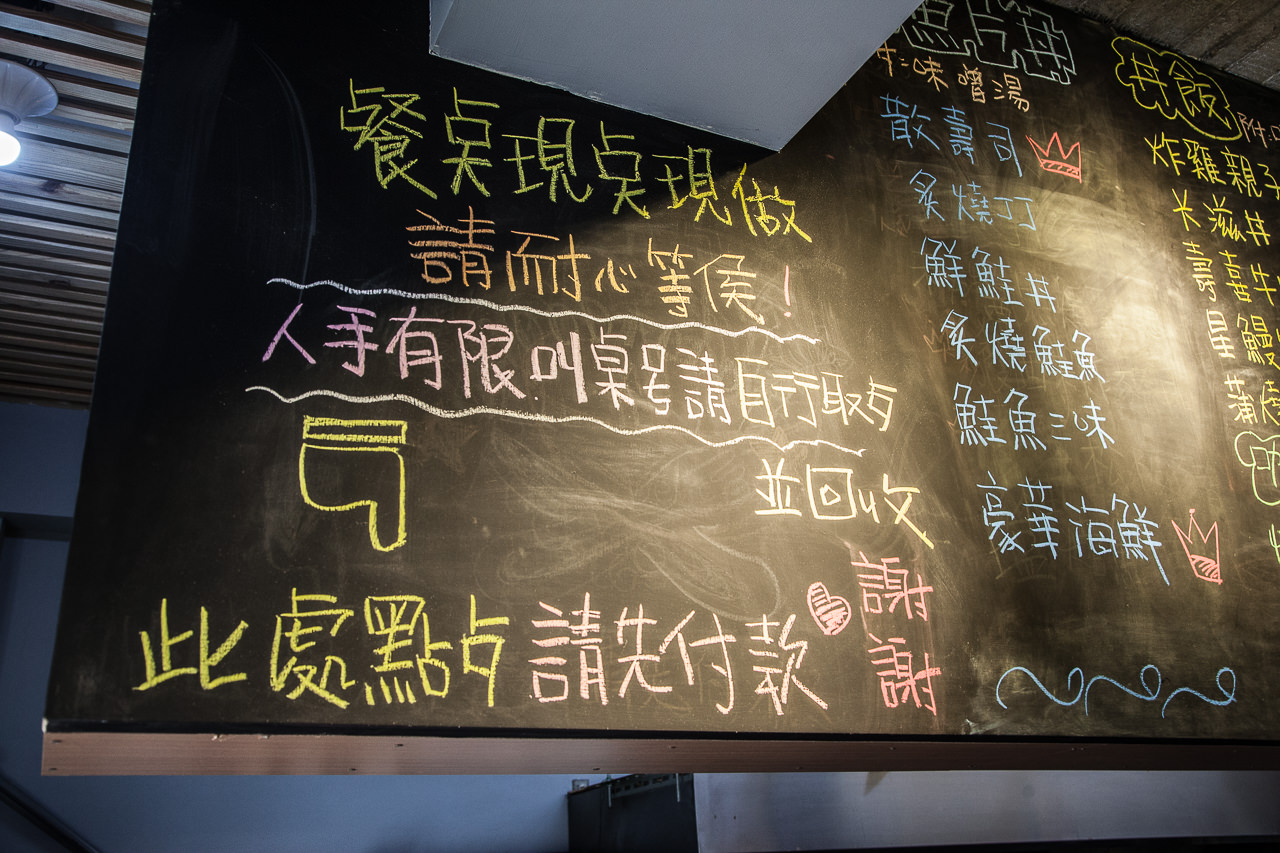 餐奌現奌現做
請耐心等侯!
人手有限.叫桌号請自行取歺
並回收
此處點歺 請先付款
謝謝
魚片丼
味噌湯
散壽司
炙燒丁丁
鮮鮭丼
炙燒鮭魚
鮭魚三味
豪華海鮮
丼飯
附
炸雞親子
卡滋丼
壽喜牛
星鰻
蒲燒